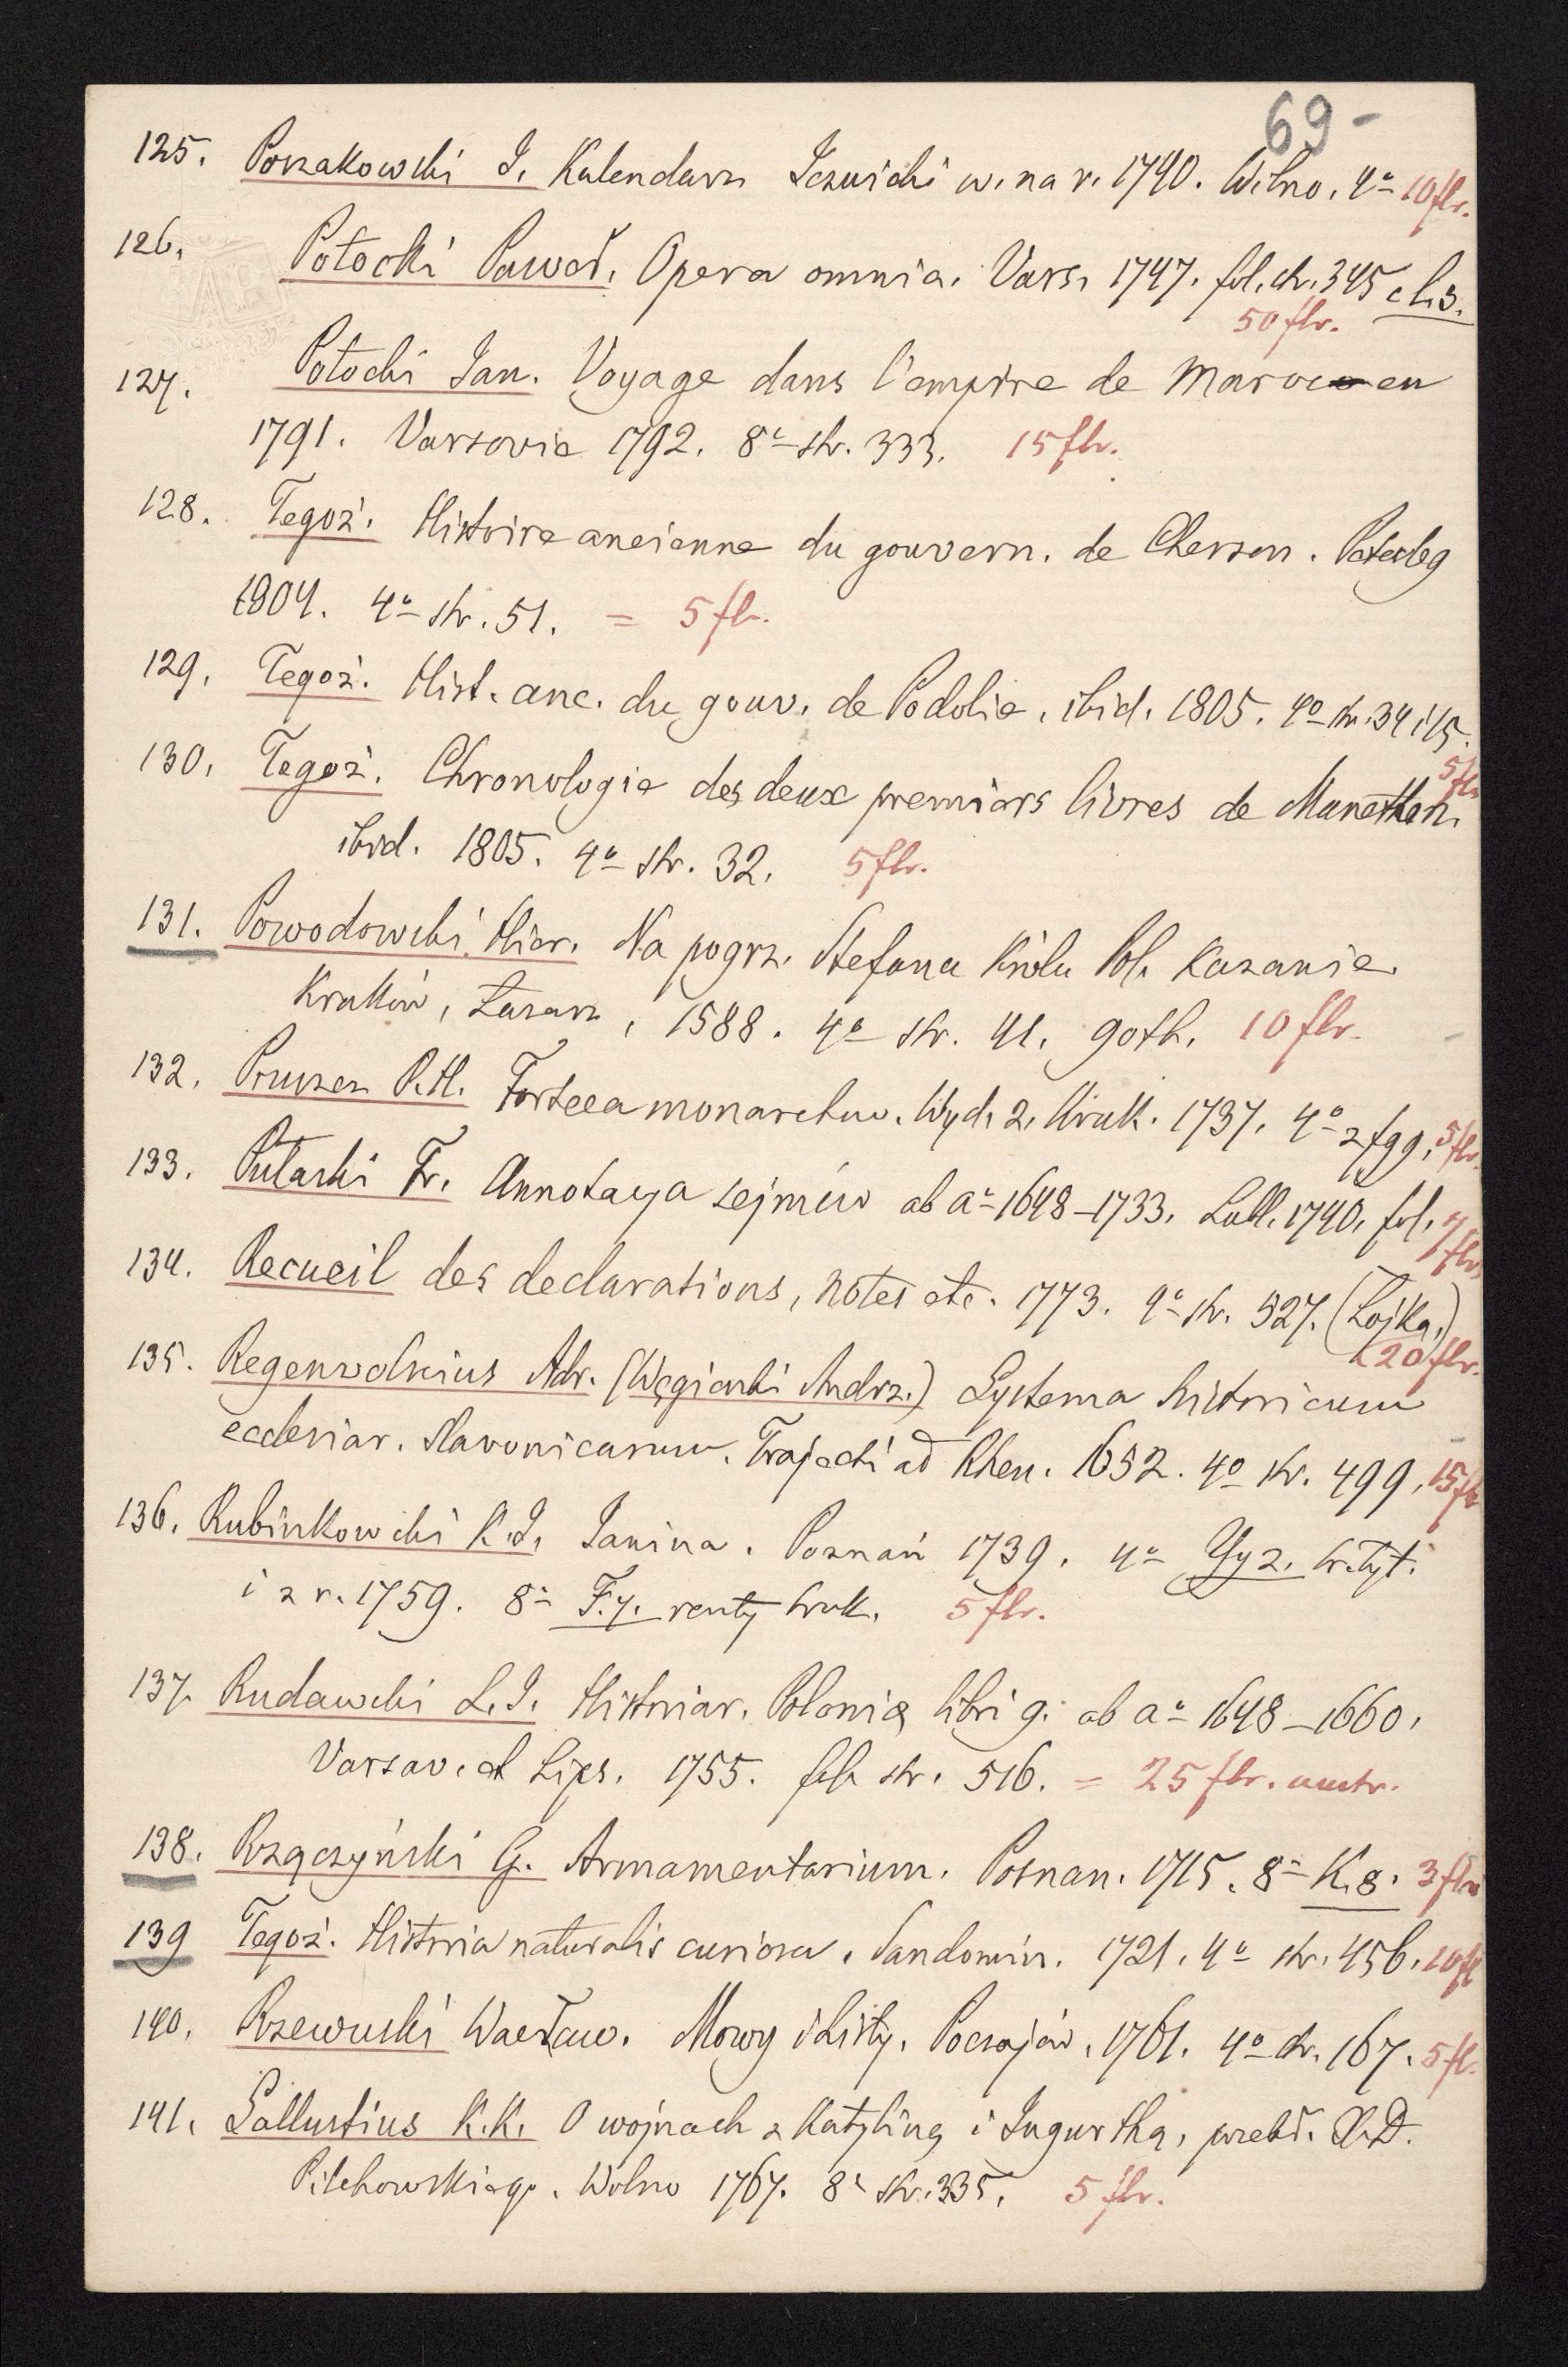 69-
125. Poszakowski J. Kalendarz Jezuicki w. na r. 1740. Wilno. 4º 10 flr.
126. Potocki Paweł. Opera omnia. Vars. 1747. fol. str. 345
50 flr.
127. Potocki Jan. Voyage dans l'empire de Maroc en
1791. Varsovie 1792. 8º str. 333. 15 flr.
128. Tegoż. Histoire ancienne du gouvern. de Cherson. Petersbg
1804. 4º str. 51. = 5 flr.
129. Tegoż. Hist. anc. du gouv. de Podolie. ibid. 1805. 4º str. 34 i 15.
5 flr.
130. Tegoż. Chronologie des deux premiers livres de Manethon.
ibid. 1805. 4º str. 32. 5 flr.
131. Powodowski Hier. Na pogrz. Stefana Króla Pol. Kazanie.
Kraków, Łazarz, 1588. 4º str. 41. goth. 10 flr.
132. Pruszcz P. H. Forteca monarchów. Wyd. 2. Krak. 1737. 4º z fgg. 5 flr.
133. Pułaski Fr. Annotacya sejmów ab aº 1648–1733. Lubl. 1740. fol. 7
flr.
134. Recueil des declarations, notes etc. 1773. 4º str. 527. (Łojka.)
20 flr.
135. Regenvolscius Adr. (Węgierski Andrz.) Systema historicum
ecclesiar. Slavonicarum. Trajecti ad Rhen. 1652. 4º str. 499. 15 fl
136. Rubinkowski K. J. Janina. Poznań 1739. 4º Yy 2. br. tyt.
i z r. 1759. 8º F. 7. reszty brak. 5 flr.
137. Rudawski L. J. Historiar. Poloniæ libri 9. ab aº 1648–1660.
Varsav. et Lips. 1755. fol. str. 516. = 25 flr. austr.
138. Rzączyński G. Armamentarium. Posnan. 1715. 8º K. 8. 3 flr.
139 Tegoż. Historia naturalis curiosa. Sandomir. 1721. 4º str. 456. 10 fl
140. Rzewuski Wacław. Mowy i Listy. Poczajów. 1761. 4º str. 167. 5 fl.
141. Sallustius K. K. O wojnach z Katyliną i Jugurthą, przekł. X. D.
Pilchowskiego. Wilno 1767. 8º str. 335. 5 flr.